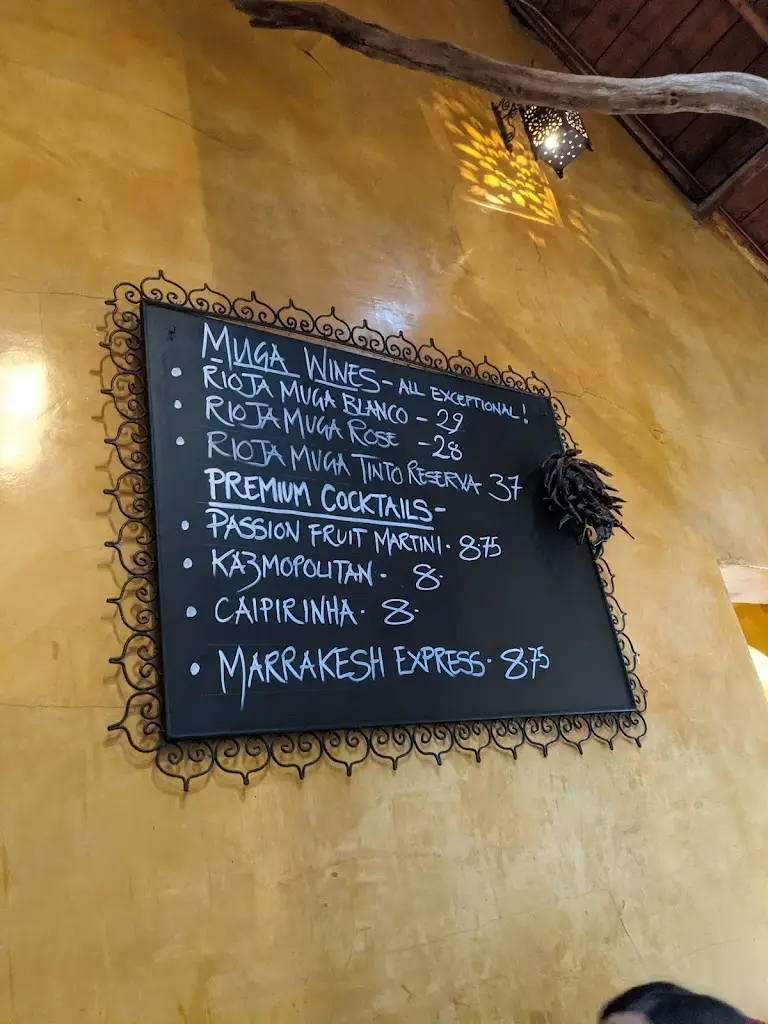 MUGA WINES - ALL EXCEPTIONAL!
• RIOJA MUGA BLANCO - 29
• RIOJA MUGA ROSE - 28
• RIOJA MUGA TINTO RESERVA 37
PREMIUM COCKTAILS -
• PASSION FRUIT MARTINI · 8.75
• KAZMOPOLITAN - 8·
• CAIPIRINHA · 8·
• MARRAKESH EXPRESS · 8.75